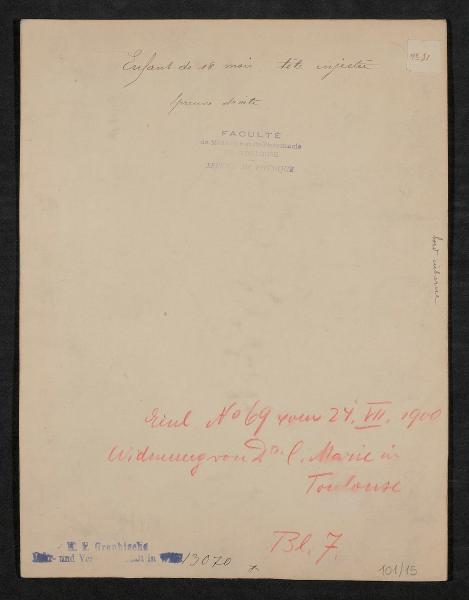 Enfant de 18 mois tête injectée
Epreuve droite
FACULTÉ
de Médecine et de Pharmacie
DE TOULOUSE
SERVICE DE PHYSIQUE
Einl No 69 vom 24. VII. 1900
Widmung von Dr. C. Marie in
Toulouse
Bl. 7.
K. K. Graphische
Lehr- und Ver in Wien
13070
101/15